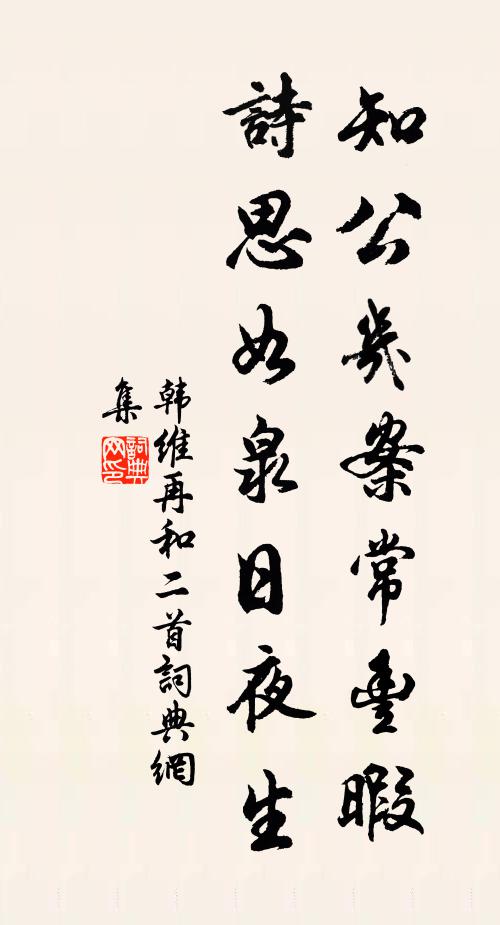 知公几案常丰暇
詩思如泉日夜生
韩维再和二首詞典網
集
詞典
网印